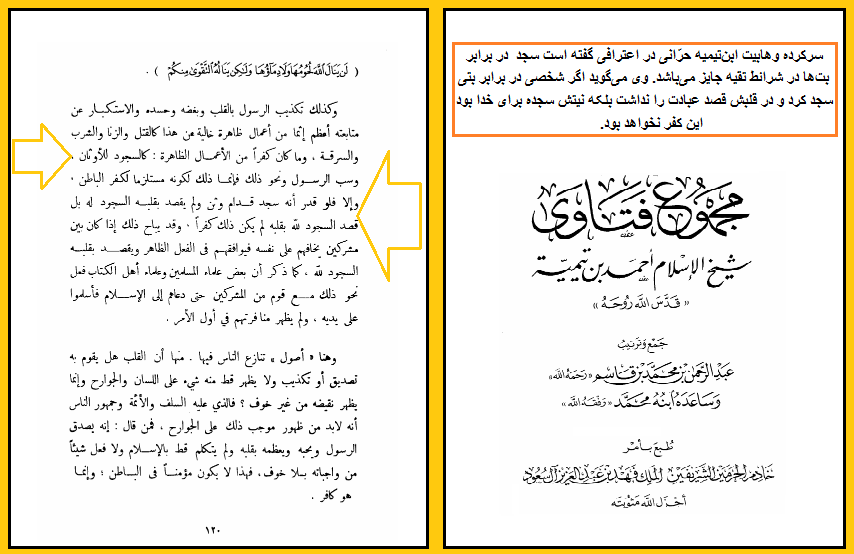 سرکرده وهابیت ابن‌تیمیه حرّانی در اعترافی گفته است سجد در برابر
بت‌ها در شرائط تقیه جایز می‌باشد. وی می‌گوید اگر شخصی در برابر بتی
سجد کرد و در قلبش قصد عبادت را نداشت بلکه نیتش سجده برای خدا بود
این کفر نخواهد بود.
مجموع فتاوى
شيخ الإسلام أحمد بن تيمية
« قدس الله روحه »
جمع وترتيب
عبد الرحمن بن محمد بن قاسم «رحمه الله»
وساعده ابنه محمد «وفقه الله»
طبع بأمر
خادم الحرمين الشريفين الملك فهد بن عبد العزيز آل سعود
أجزل الله مثوبته
( لَن يَنَالَ اللَّهَ لُحُومُهَا وَلَا دِمَاؤُهَا وَلَكِن يَنَالُهُ التَّقْوَى مِنكُمْ ) .
وكذلك تكذيب الرسول بالقلب وبغضه وحسده والاستكبار عن
متابعته أعظم إثما من أعمال ظاهرة خالية من هذا كالقتل والزنا والشرب
والسرقة ، وما كان كفراً من الأعمال الظاهرة : كالسجود للأوثان ،
وسب الرسول ونحو ذلك فإنما ذلك لكونه مستلزما لكفر الباطن ،
وإلا فلو قدر أنه سجد قدام وثن ولم يقصد بقلبه السجود له بل
قصد السجود لله بقلبه لم يكن ذلك كفراً . وقد يباح ذلك إذا كان بين
مشركين يخافهم على نفسه فيوافقهم فى الفعل الظاهر ويقصد بقلبه
السجود لله ، كما ذكر أن بعض علماء المسلمين وعلماء أهل الكتاب فعل
نحو ذلك مع قوم من المشركين حتى دعاهم إلى الإسلام فأسلموا
على يديه ، ولم يظهر منافرتهم فى أول الأمر .
وهنا « أصول » تنازع الناس فيها . منها أن القلب هل يقوم به
تصديق أو تكذيب ولا يظهر قط منه شيء على اللسان والجوارح وإنما
يظهر نقيضه من غير خوف ؟ فالذي عليه السلف والأئمة وجمهور الناس
أنه لابد من ظهور موجب ذلك على الجوارح ، فمن قال : إنه يصدق
الرسول ويحبه ويعظمه بقلبه ولم يتكلم قط بالإسلام ولا فعل شيئاً
من واجباته بلا خوف ، فهذا لا يكون مؤمناً فى الباطن ؛ وإنما
هو كافر .
١٢٠